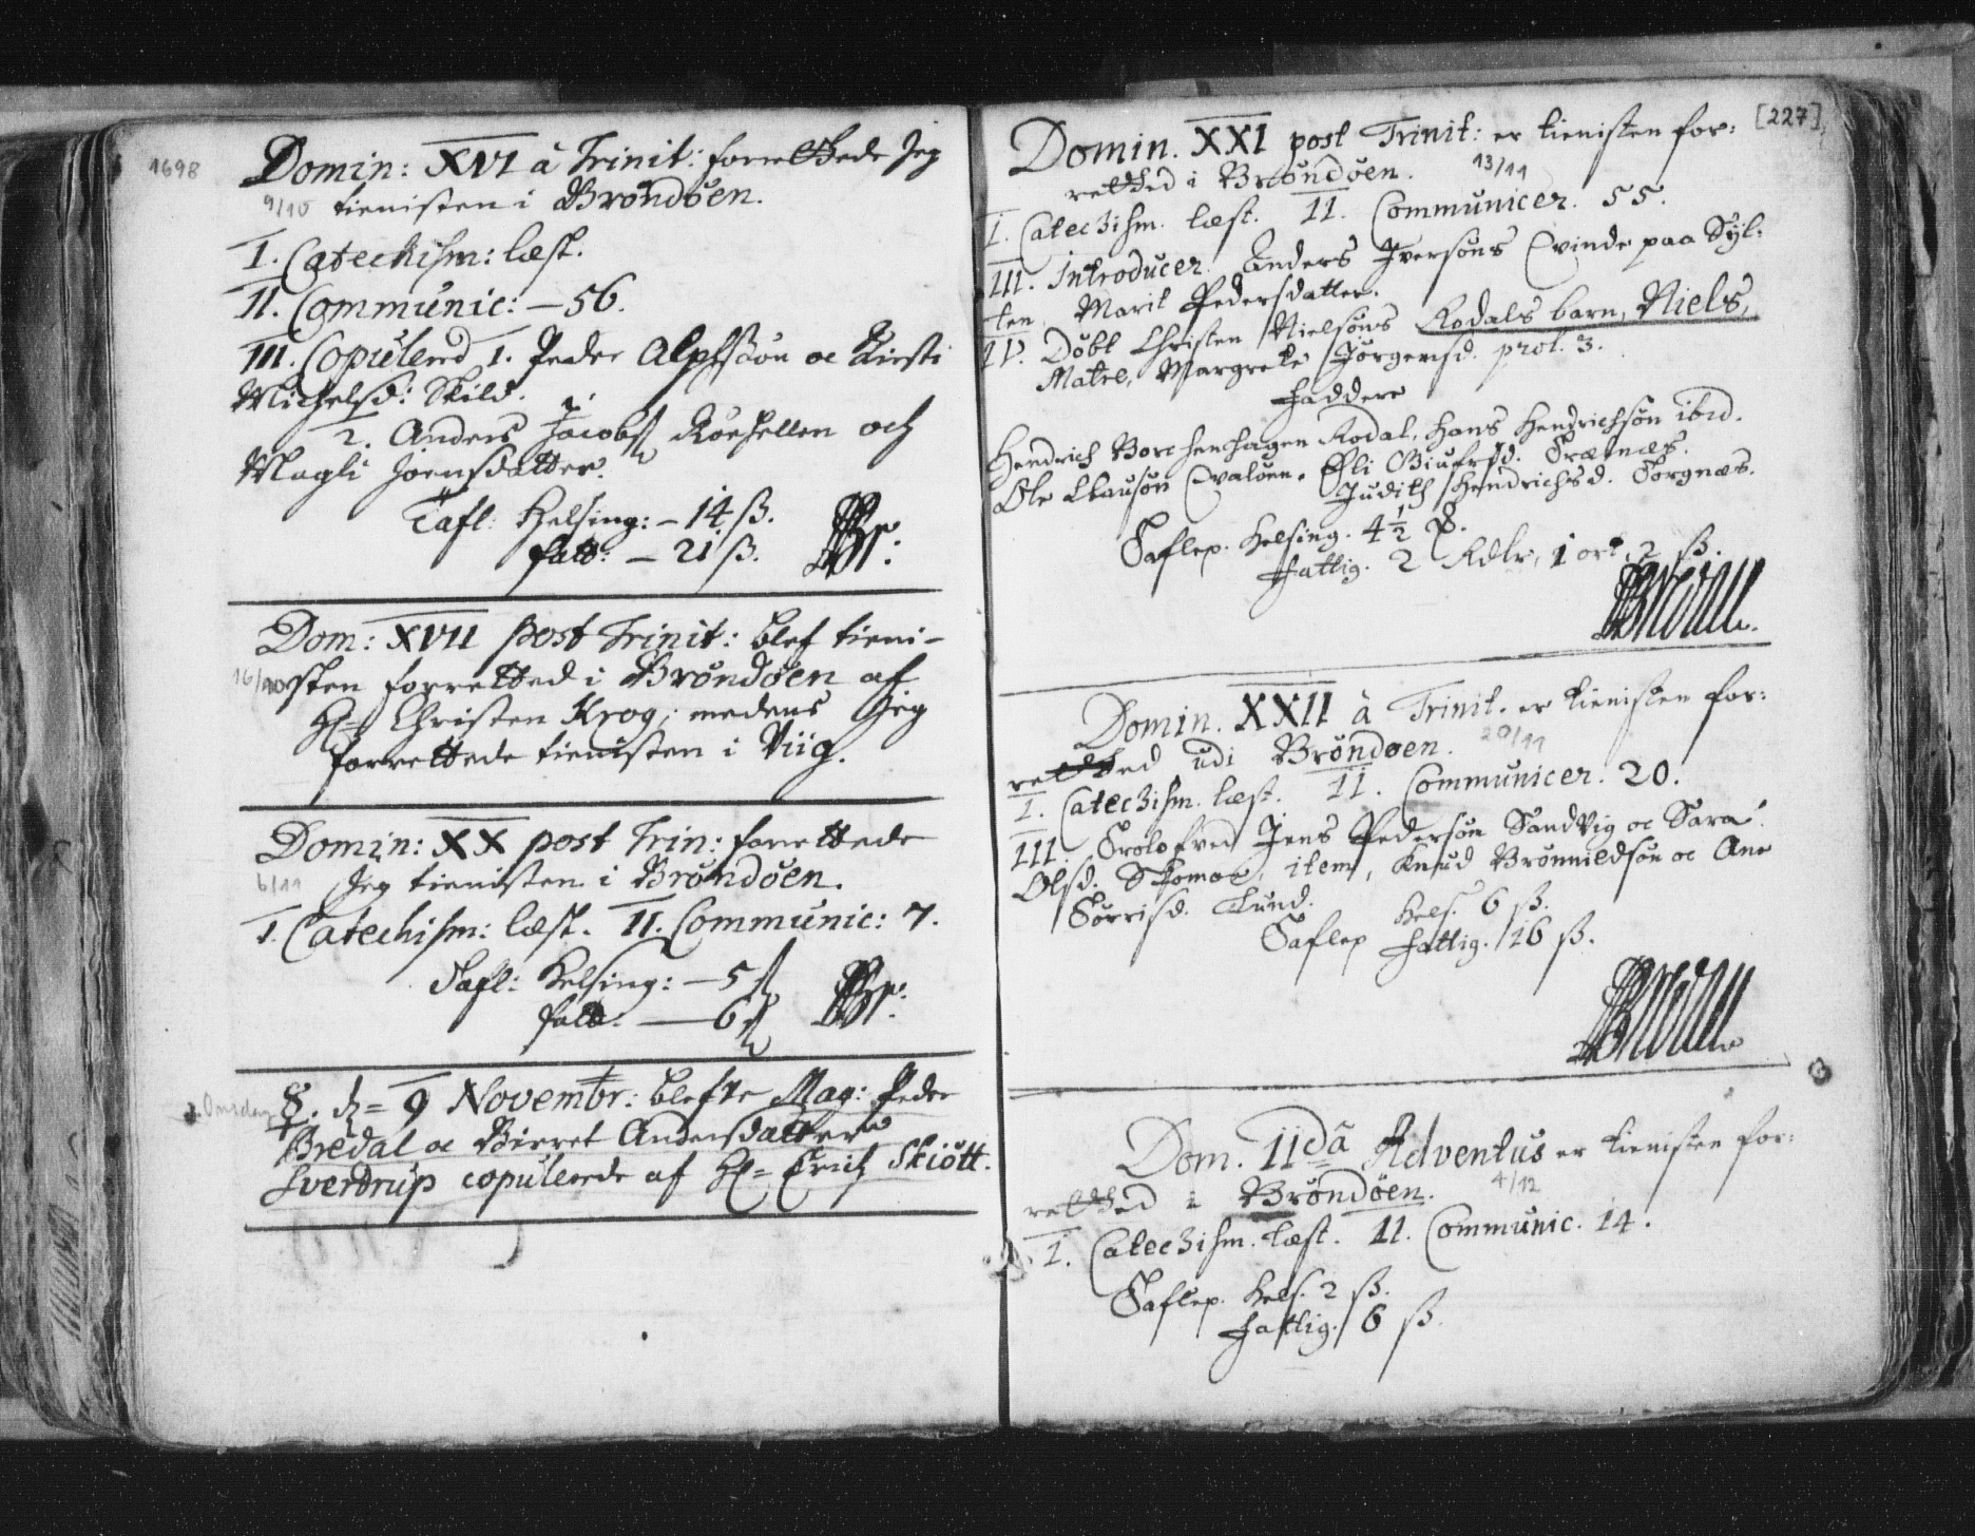 1698
Domin: XVI â Trinit: forrettede Jeg
9/10 tienisten i Brøndøen.
I. Catechism: læst.
II. Communic: – 56.
III. Copulered 1. Peder Alphssøn oc Kirsti
Michelsd: Skild.
2. Anders Jacobs Røehellen och
Magli Joensdatter.
Tafl: Helsing: – 14 ß.
fatt: – 21 ß. Br:
Dom: XVII post Trinit: blef tieni-
16/10 sten forretted i Brøndøen af
Hr= Christen Krog; medens Jeg
forrettede tienisten i Viig.
Domin: XX post Trin: forrettede
6/11 Jeg tienisten i Brøndøen.
I. Catechism: læst. II. Communic: 7.
Tafl: Helsing: – 5 ß
fatt: — 6 ß Br:
Onsdag ☿. d= 9 Novembr: blefve Mag: Peder
Bredal oc Birret Andersdatter
Sverdrup copulerede af Hr= Erich Skiøtt.
[227]
Domin. XXI post Trinit: er tienisten for:
retted i Brøndøen. 13/11
I. Catechism. læst. II. Communicer. 55.
III. Introducer. Anders Iversøns Qvinde paa Syl:
ten Marit Pedersdatter.
IV. Døbt Christen Nielsøns Rodals barn, Niels,
Matre, Margrete Jørgensd. prol. 3.
Faddere
Hendrich Borchenhagen Rodal, Hans Hendrichsøn ibid.
Ole Clausøn Qvaløen. Elli Trætnæs.
Judith Hendrichsd. Torgnæs.
Taflep. Helsing. 4½ ß.
Fattig. 2 Rdlr, 1 ort 2 ß.
Bredal.
Domin. XXII â Trinit. er tienisten for:
retted udi Brøndøen. 20/11
I. Catechism. læst. II. Communicer. 20.
III. Trolofved Jens Pedersøn Sandvig oc Sara
Olsd. Skomoe, item, Knud Brønnildsøn oc Ane
Sørrisd. Lund.
Taflep Hels. 6 ß.
Fattig. 16 ß.
Bredal
Dom. IIdâ Adventus er tienisten for:
retted i Brøndøen. 4/12
I. Catechism. læst. II. Communic. 14.
Taflep. Hels. 2 ß.
Fattig. 6 ß.